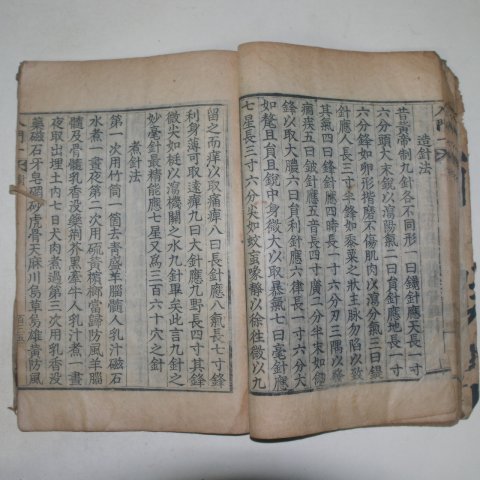 造針法
昔黃帝制九針各不同形一曰鑱針應天長一寸
六分頭大末銳以瀉陽氣二曰員針應地長一寸
六分鋒如卵形揩磨不傷肌肉以瀉分氣三曰鍉
針應人長三寸半鋒如黍粟之狀主脉勿陷以致
其氣四曰鋒針應四時長一寸六分刃三隅以發
痼疾五曰鈹針應五音長四寸廣二分半末如劒
鋒以取大膿六曰員利針應六律長一寸六分大
如氂且員且銳中身微大以取暴氣七曰毫針應
七星長三寸六分尖如蚊虻喙靜以徐往微以九
留之而痒以取痛痺八曰長針應八氣長七寸其鋒
利身薄可取遠痺九曰大針應九野長四寸其鋒
微尖如梃以瀉機關之水九針畢矣此言九針之
妙毫針最精能應七星又爲三百六十穴之針
煮針法
第一次用竹筒一箇去青盛羊腦髓人乳汁磁石
水煮一晝夜第二次用硫黃檳榔當歸防風羊腦
髓及骨髓乳香没藥荊芥黑牽牛人乳汁煮一晝
夜取出埋土內七日犬肉煮過第三次用乳香没
藥磁石牙皂硇砂虎骨天麻川烏草烏雄黃防風